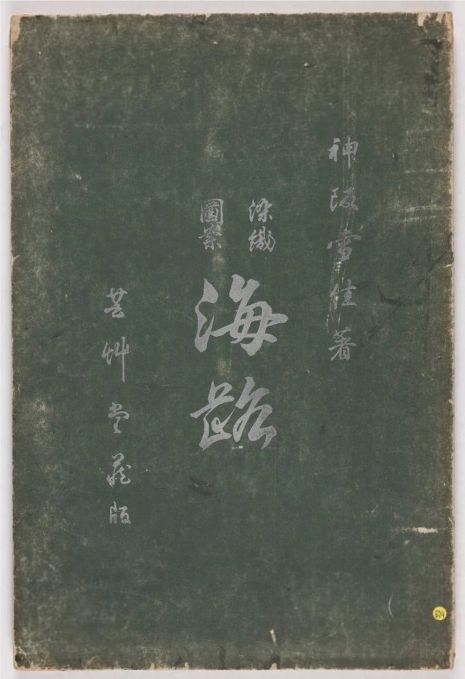 神坂雪佳著
染織
圖案
海路
芸艸堂蔵版